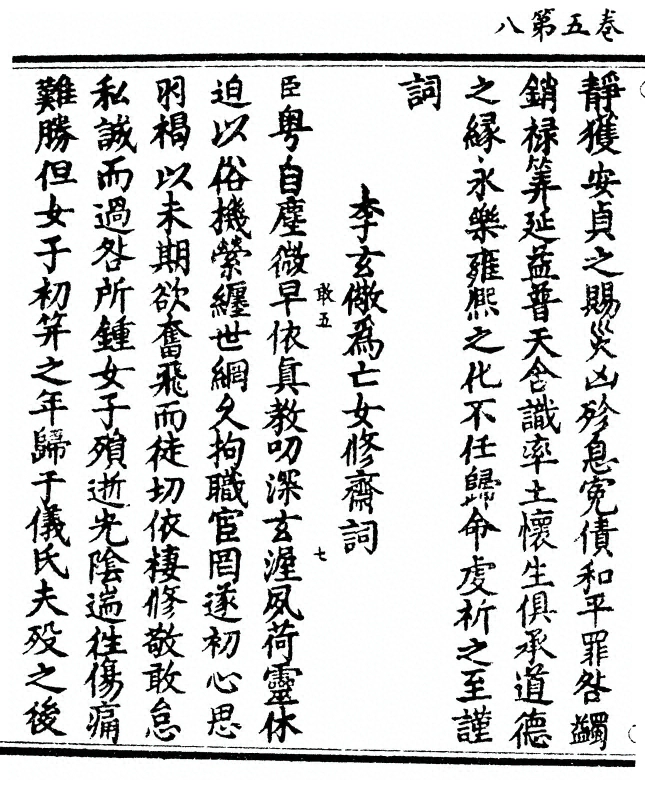 卷五第八
靜獲安貞之賜災凶殄息寃債和平罪咎蠲
銷禄筭延益普天含識率土懷生俱承道德
之緣永樂雍熙之化不任歸命虔祈之至謹
詞
李玄儆爲亡女修齋詞
臣粤自塵微早依眞教叨深玄渥夙荷靈休
敢五
七
迫以俗機縈纏世網久拘職宦罔遂初心思
羽褐以未期欲奮飛而徒切依棲修敬敢怠
私誠而過咎所鍾女子殞逝光陰遄往傷痛
難勝但女子初笄之年歸于儀氏夫殁之後